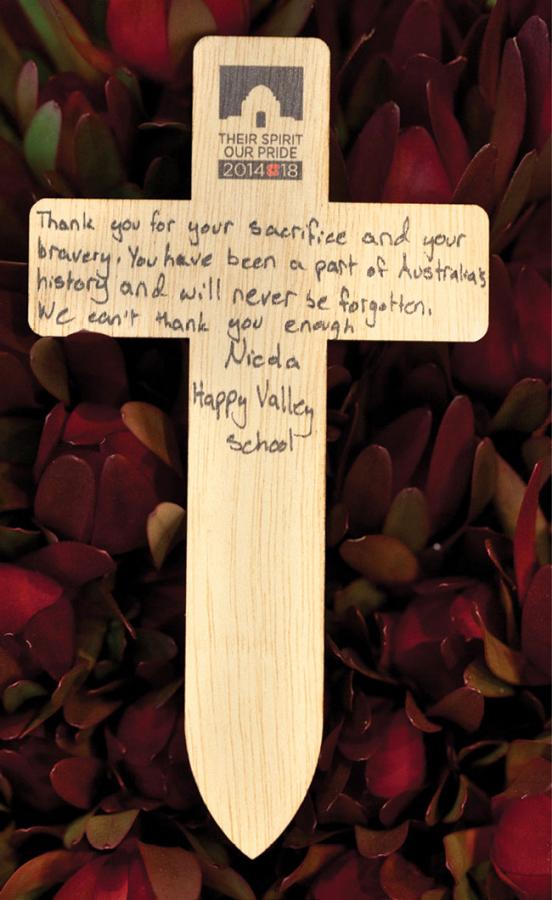 THEIR SPIRIT
OUR PRIDE
2014 18
Thank you for your sacrifice and your
bravery. You have been a part of Australia's
history and will never be forgotten.
We can't thank you enough
Nicola
Happy Valley
School